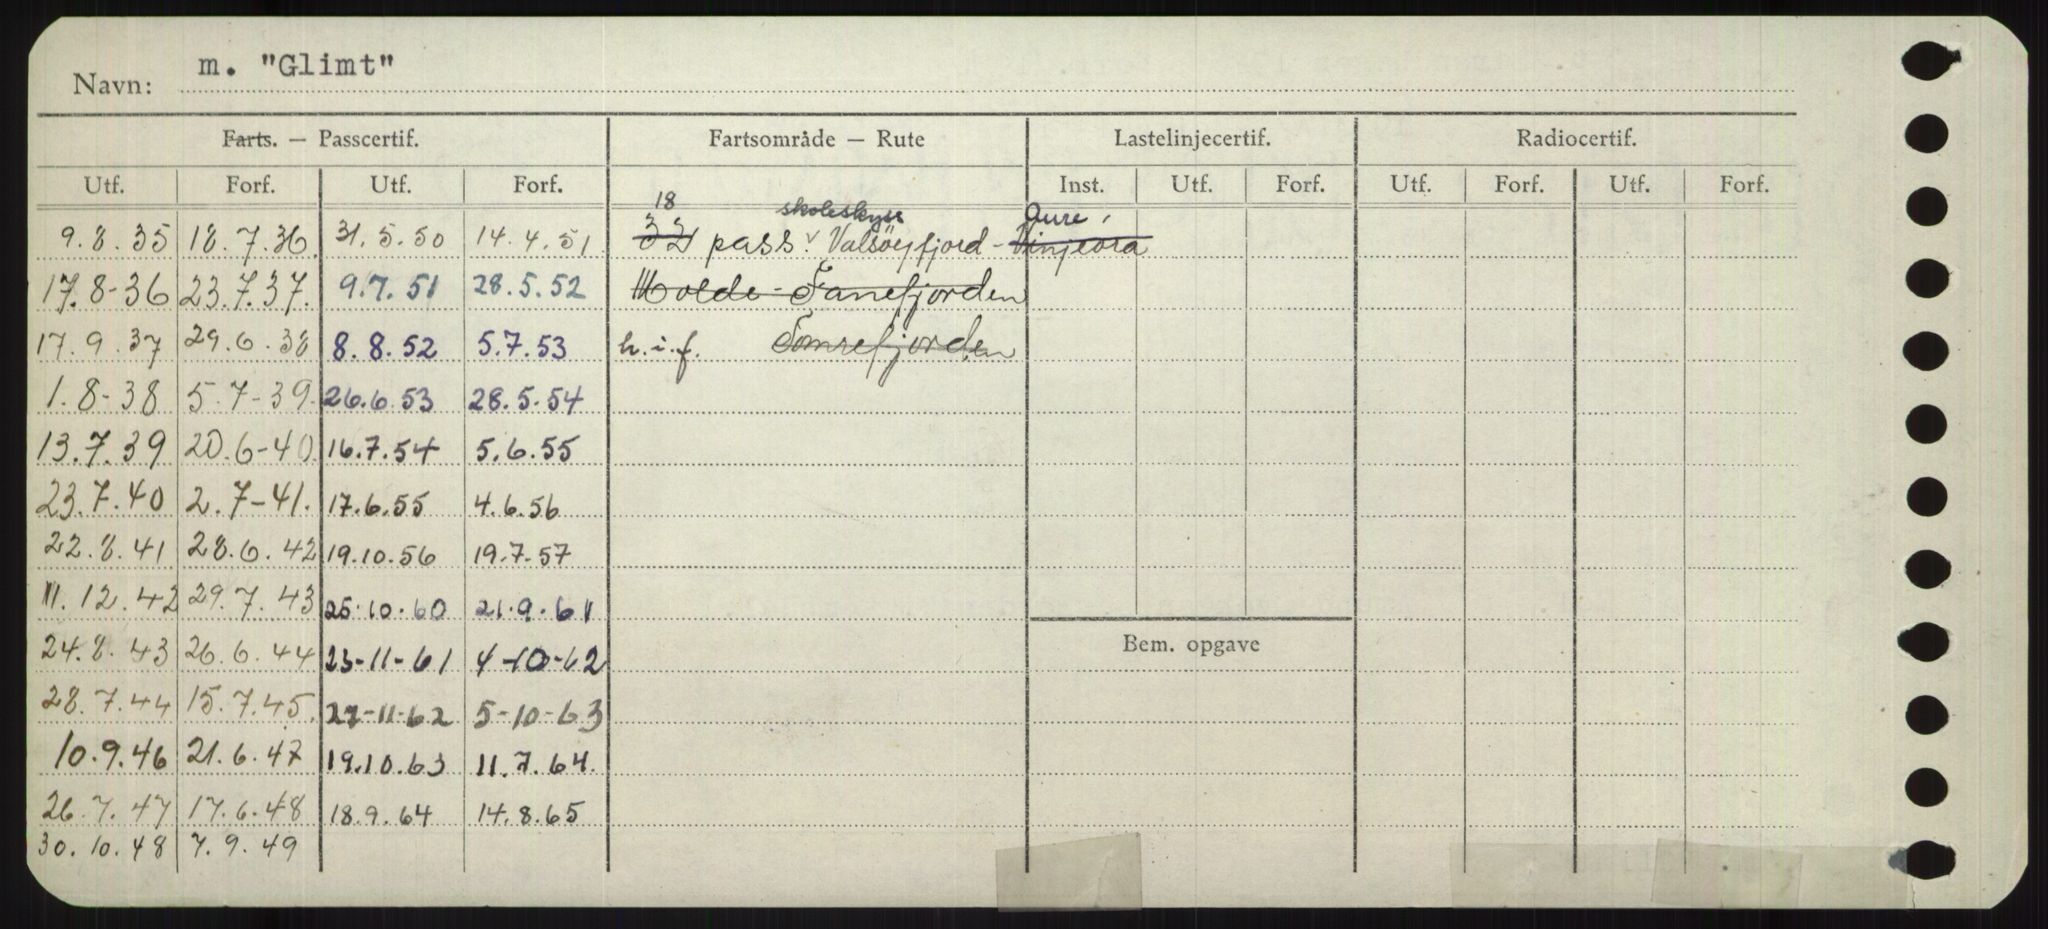 Navn: m. "Glimt"
Farts. — Passcertif. Fartsområde — Rute Lastelinjecertif. Radiocertif.
Utf. Forf. Utf. Forf. Inst. Utf. Forf. Utf. Forf. Utf. Forf.
18 skoleskyss Aure
9.8.35 18.7.36 31.5.50 14.4.51 32 pass. Valsöyfjord - Vinjeøra
17.8-36 23.7.37. 9.7.51 28.5.52 Molde - Fanefjorden
17.9.37 29.6.38 8.8.52 5.7.53 h.i.f. Tomrefjorden
1.8-38 5.7-39. 26.6.53 28.5.54
13.7.39 20.6-40. 16.7.54 5.6.55
23.7.40 2.7-41. 17.6.55 4.6.56
22.8.41 28.6.42 19.10.56 19.7.57
11.12.42 29.7.43 25.10.60 21.9.61
24.8.43 26.6.44 23-11-61 4-10-62
Bem. opgave
28.7.44 15.7.45. 27-11-62 5-10-63
10.9.46 21.6.47 19.10.63 11.7.64.
26.7.47 17.6.48 18.9.64 14.8.65
30.10.48 7.9.49